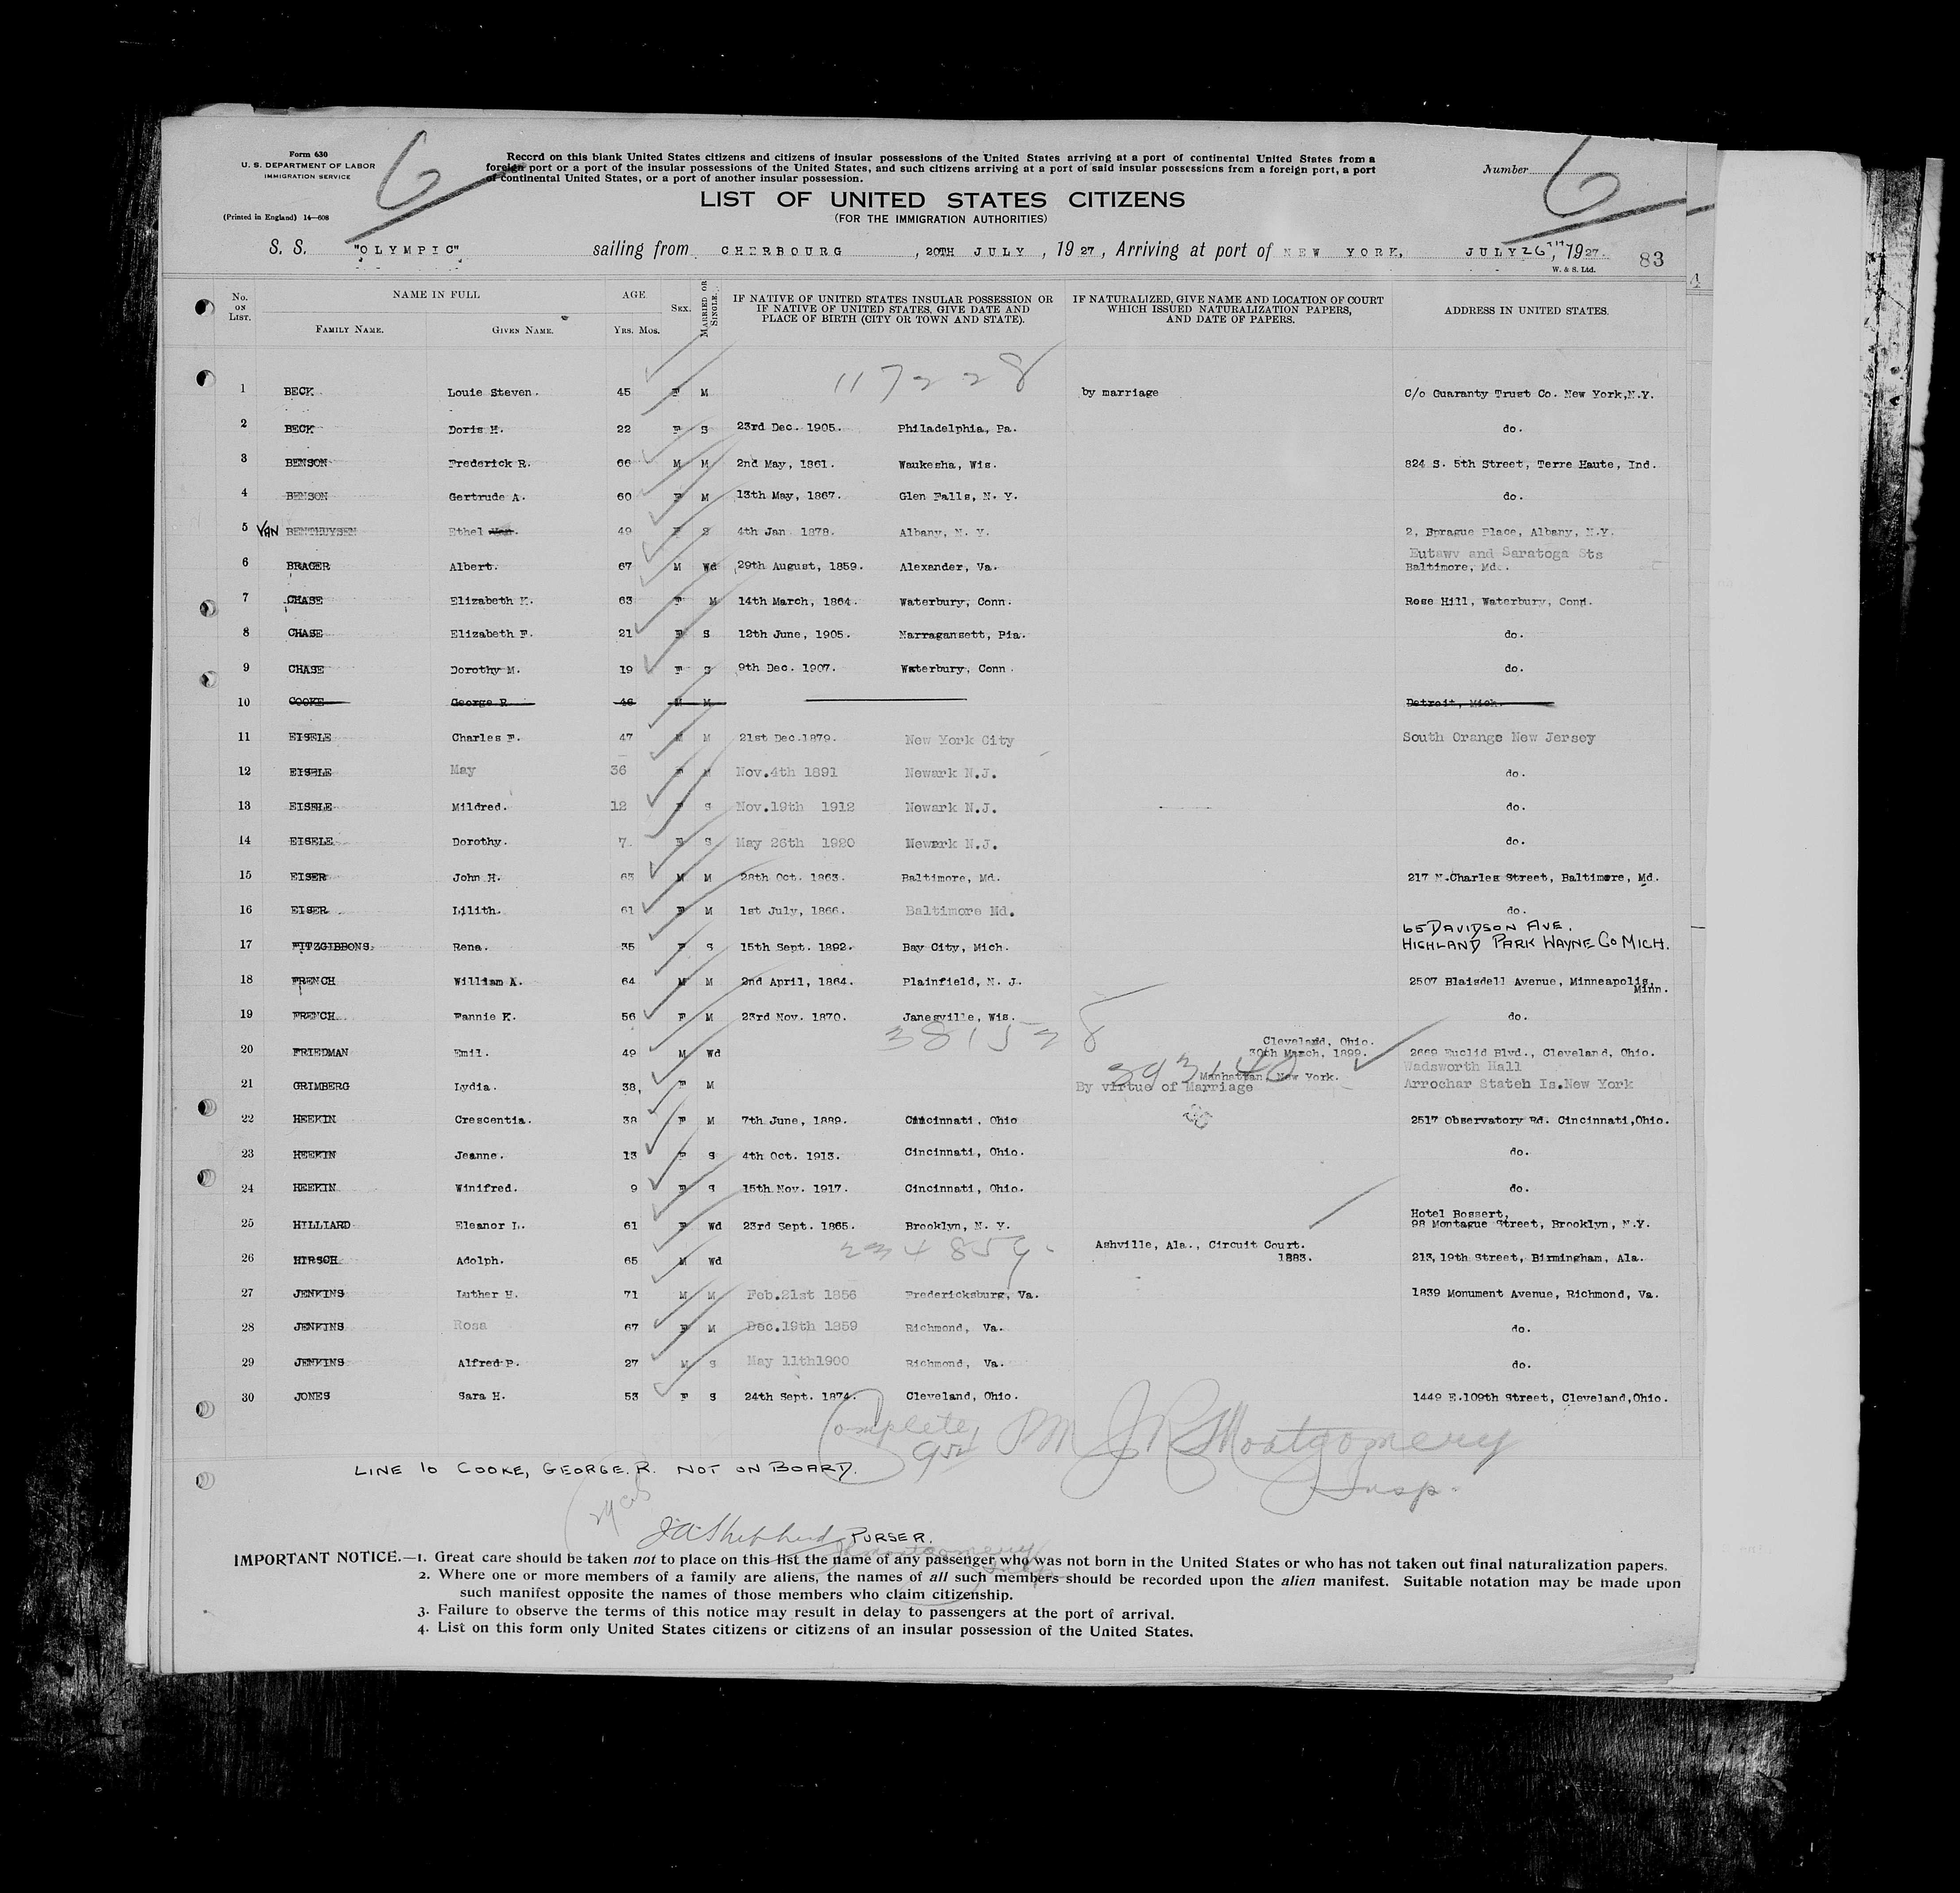 Form 630
U. S. DEPARTMENT OF LABOR
IMMIGRATION SERVICE
(Printed in England) 14—608
6
Record on this blank United States citizens and citizens of insular possessions of the United States arriving at a port of continental United States from a
foreign port or a port of the insular possessions of the United States, and such citizens arriving at a port of said insular possessions from a foreign port, a port
of continental United States, or a port of another insular possession.
Number 6
LIST OF UNITED STATES CITIZENS
(FOR THE IMMIGRATION AUTHORITIES)
S. S. "OLYMPIC" sailing from CHERBOURG, 20TH JULY, 1927, Arriving at port of NEW YORK, JULY 26TH, 1927.
W. & S. Ltd.
83
No. ON LIST. NAME IN FULL FAMILY NAME. GIVEN NAME. AGE YRS. MOS. SEX. MARRIED OR SINGLE. IF NATIVE OF UNITED STATES INSULAR POSSESSION OR IF NATIVE OF UNITED STATES, GIVE DATE AND PLACE OF BIRTH (CITY OR TOWN AND STATE). IF NATURALIZED, GIVE NAME AND LOCATION OF COURT WHICH ISSUED NATURALIZATION PAPERS, AND DATE OF PAPERS. ADDRESS IN UNITED STATES.
1 BECK Louie Steven. 45 F M 117228 by marriage C/o Guaranty Trust Co. New York, N.Y.
2 BECK Doris H. 22 F S 23rd Dec. 1905. Philadelphia, Pa. do.
3 BENSON Frederick R. 66 M M 2nd May, 1861. Waukesha, Wis. 824 S. 5th Street, Terre Haute, Ind.
4 BENSON Gertrude A. 60 F M 13th May, 1867. Glen Falls, N. Y. do.
5 VAN BENTHUYSEN Ethel Van. 49 F S 4th Jan 1878. Albany, N. Y. 2, Sprague Place, Albany, N.Y.
6 BRAGER Albert. 67 M Wd 29th August, 1859. Alexander, Va. Eutawv and Saratoga Sts Baltimore, Md.
7 CHASE Elizabeth K. 63 F M 14th March, 1864. Waterbury, Conn. Rose Hill, Waterbury, Conn.
8 CHASE Elizabeth F. 21 F S 12th June, 1905. Narragansett, Pia. do.
9 CHASE Dorothy M. 19 F S 9th Dec. 1907. Waterbury, Conn. do.
10 COOKE George R 46 M M Detroit, Mich.
11 EISELE Charles F. 47 M M 21st Dec. 1879. New York City South Orange New Jersey
12 EISELE May 36 F M Nov. 4th 1891 Newark N.J. do.
13 EISELE Mildred. 12 F S Nov. 19th 1912 Newark N.J. do.
14 EISELE Dorothy. 7 F S May 26th 1920 Newark N.J. do.
15 EISER John H. 63 M M 28th Oct. 1863. Baltimore, Md. 217 N. Charles Street, Baltimore, Md.
16 EISER Lilith. 61 F M 1st July, 1866. Baltimore Md. do.
17 FITZGIBBONS. Rena. 35 F S 15th Sept. 1892. Bay City, Mich. 65 DAVIDSON AVE. HIGHLAND PARK WAYNE CO MICH.
18 FRENCH William A. 64 M M 2nd April, 1864. Plainfield, N. J. 2507 Blaisdell Avenue, Minneapolis, Minn.
19 FRENCH Fannie K. 56 F M 23rd Nov. 1870. Janesville, Wis. do.
20 FRIEDMAN Emil. 49 M Wd 381528 Cleveland, Ohio. 30th March, 1899. 2669 Euclid Blvd., Cleveland, Ohio.
21 GRIMBERG Lydia. 38, F M 393140 Manhattan, New York. By virtue of Marriage Wadsworth Hall Arrochar Staten Is. New York
22 HEEKIN Crescentia. 38 F M 7th June, 1889. Cincinnati, Ohio 2517 Observatory Rd. Cincinnati, Ohio.
23 HEEKIN Jeanne. 13 F S 4th Oct. 1913. Cincinnati, Ohio. do.
24 HEEKIN Winifred. 9 F S 15th Nov. 1917. Cincinnati, Ohio. do.
25 HILLIARD Eleanor L. 61 F Wd 23rd Sept. 1865. Brooklyn, N. Y. Hotel Bossert, 98 Montague Street, Brooklyn, N.Y.
26 HIRSCH Adolph. 65 M Wd 234859 Ashville, Ala., Circuit Court. 1883. 213, 19th Street, Birmingham, Ala.
27 JENKINS Luther H. 71 M M Feb. 21st 1856 Fredericksburg, Va. 1839 Monument Avenue, Richmond, Va.
28 JENKINS Rosa 67 F M Dec. 19th 1859 Richmond, Va. do.
29 JENKINS Alfred P. 27 M S May 11th 1900 Richmond, Va. do.
30 JONES Sara H. 53 F S 24th Sept. 1874. Cleveland, Ohio. 1449 E. 109th Street, Cleveland, Ohio.
Complete J R Montgomery
Insp.
LINE 10 COOKE, GEORGE. R. NOT ON BOARD.
J.A. Shepherd PURSER.
IMPORTANT NOTICE.—1. Great care should be taken not to place on this list the name of any passenger who was not born in the United States or who has not taken out final naturalization papers.
2. Where one or more members of a family are aliens, the names of all such members should be recorded upon the alien manifest. Suitable notation may be made upon
such manifest opposite the names of those members who claim citizenship.
3. Failure to observe the terms of this notice may result in delay to passengers at the port of arrival.
4. List on this form only United States citizens or citizens of an insular possession of the United States.